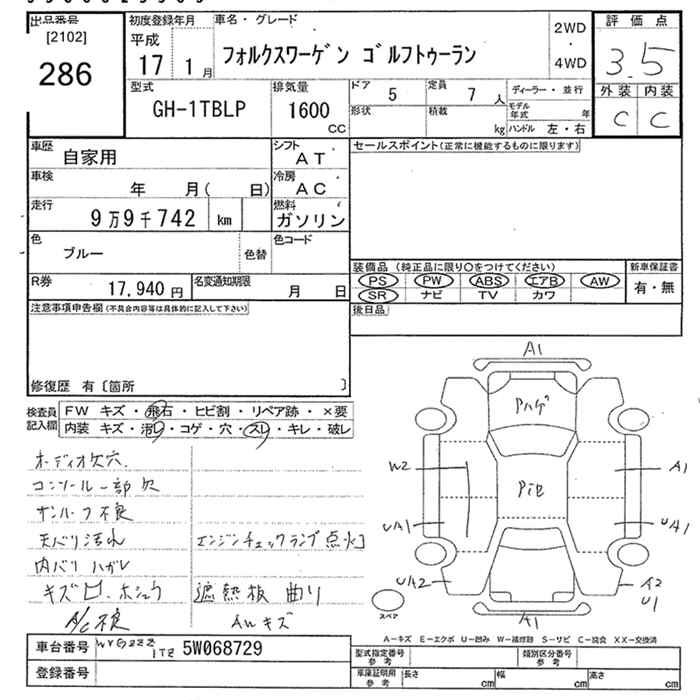 出品番号
[2102]
286
初度登録年月
平成
17 1月
車名・グレード
フォルクスワーゲン ゴルフトゥーラン
2WD
・
4WD
評価点
3.5
外装 内装
C C
型式
GH-1TBLP
排気量
1600
CC
ドア 5
定員 7人
形状
積載 kg
ディーラー・並行
モデル年式 年
ハンドル 左・右
車歴 自家用
シフト AT
車検 年 月( 日)
冷房 AC
走行 9万9千742 km
燃料 ガソリン
色 ブルー
色替
色コード
R券 17,940円
名変通知期限 月 日
セールスポイント(正常に機能するものに限ります)
装備品(純正品に限り○をつけてください)
PS PW ABS エアB AW
SR ナビ TV カワ
新車保証書
有・無
後日品
注意事項申告欄(不具合内容等は具体的に記入して下さい)
修復歴 有〔箇所 〕
検査員記入欄
FW キズ・飛石・ヒビ割・リペア跡・×要
内装 キズ・汚レ・コゲ・穴・スレ・キレ・破レ
オーディオ欠穴
コンソール一部欠
サンルーフ不良
天バリ汚れ
エンジンチェックランプ点灯
内バリハガレ
キズ凹、ホシュウ
遮熱板曲り
A/C不良
AWキズ
A1
Pハゲ
W2
Pヒビ
A1
UA1
UA1
UA2
A2
U1
スペア
A1
A-キズ E-エクボ U-凹み W-補修跡 S-サビ C-腐食 XX-交換済
車台番号 WVGZZZ
1TZ 5W068729
登録番号
型式指定番号
参考
類別区分番号
参考
車庫証明用
参考
長さ cm
幅 cm
高さ cm